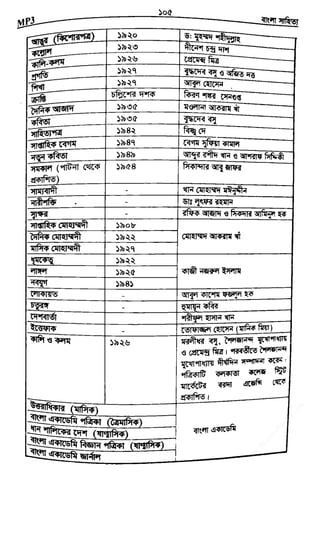 MP3
১০৫
বাংলা সাহিত্য
আঙুর (কিশোরপত্র) ১৯২০ ড: মুহম্মদ শহীদুল্লাহ
কল্লোল ১৯২৩ দীনেশ চন্দ্র দাশ
কালি-কলম ১৯২৬ প্রেমেন্দ্র মিত্র
প্রগতি ১৯২৭ বুদ্ধদেব বসু ও অজিত দত্ত
শিখা ১৯২৭ আবুল হোসেন
ক্রান্তি চল্লিশের দশক কিরণ শঙ্কর সেনগুপ্ত
দৈনিক আজাদ ১৯৩৫ মওলানা আকরাম খাঁ
কবিতা ১৯৩৫ বুদ্ধদেব বসু
সাহিত্যপত্র ১৯৪২ বিষ্ণু দে
সাপ্তাহিক বেগম ১৯৪৭ বেগম সুফিয়া কামাল
নতুন কবিতা ১৯৪৯ আব্দুর রশীদ খান ও আশরাফ সিদ্দিকী
সমকাল (পাটনা থেকে প্রকাশিত) ১৯৫৪ সিকান্দার আবু জাফর
সাম্যবাদী - খান মোহাম্মদ মঈনুদ্দীন
নারীশক্তি - ডাঃ লুৎফর রহমান
স্বাক্ষর - রফিক আজাদ ও সিকদার আমিনুল হক
সাপ্তাহিক মোহাম্মদী ১৯০৮
দৈনিক মোহাম্মদী ১৯২২ মোহাম্মদ আকরাম খাঁ
মাসিক মোহাম্মদী ১৯২৭
ধূমকেতু ১৯২২
লাঙ্গল ১৯২৫ কাজী নজরুল ইসলাম
নবযুগ ১৯৪১
লোকায়ত - আবুল কাশেম ফজলুল হক
চতুরঙ্গ - হুমায়ুন কবির
দেশবার্তা - শরীফুল হাসান খান
ইত্তেফাক - তোফাজ্জল হোসেন (মানিক মিয়া)
কালি ও কলম ১৯২৬ মুরলীধর বসু, শৈলজানন্দ মুখোপাধ্যায়
ও প্রেমেন্দ্র মিত্র। পরবর্তীতে শৈলজানন্দ
মুখোপাধ্যায় দীর্ঘদিন সম্পাদনা করেন।
পত্রিকাটি কলকাতা কলেজ স্ট্রিট
মার্কেটের বরদা এজেন্সি থেকে
প্রকাশিত।
উত্তরাধিকার (মাসিক)
বাংলা একাডেমি পত্রিকা (ত্রৈমাসিক)
ধান শালিকের দেশ (ষাণ্মাসিক) বাংলা একাডেমি
বাংলা একাডেমি বিজ্ঞান পত্রিকা (ষাণ্মাসিক)
বাংলা একাডেমি জার্নাল